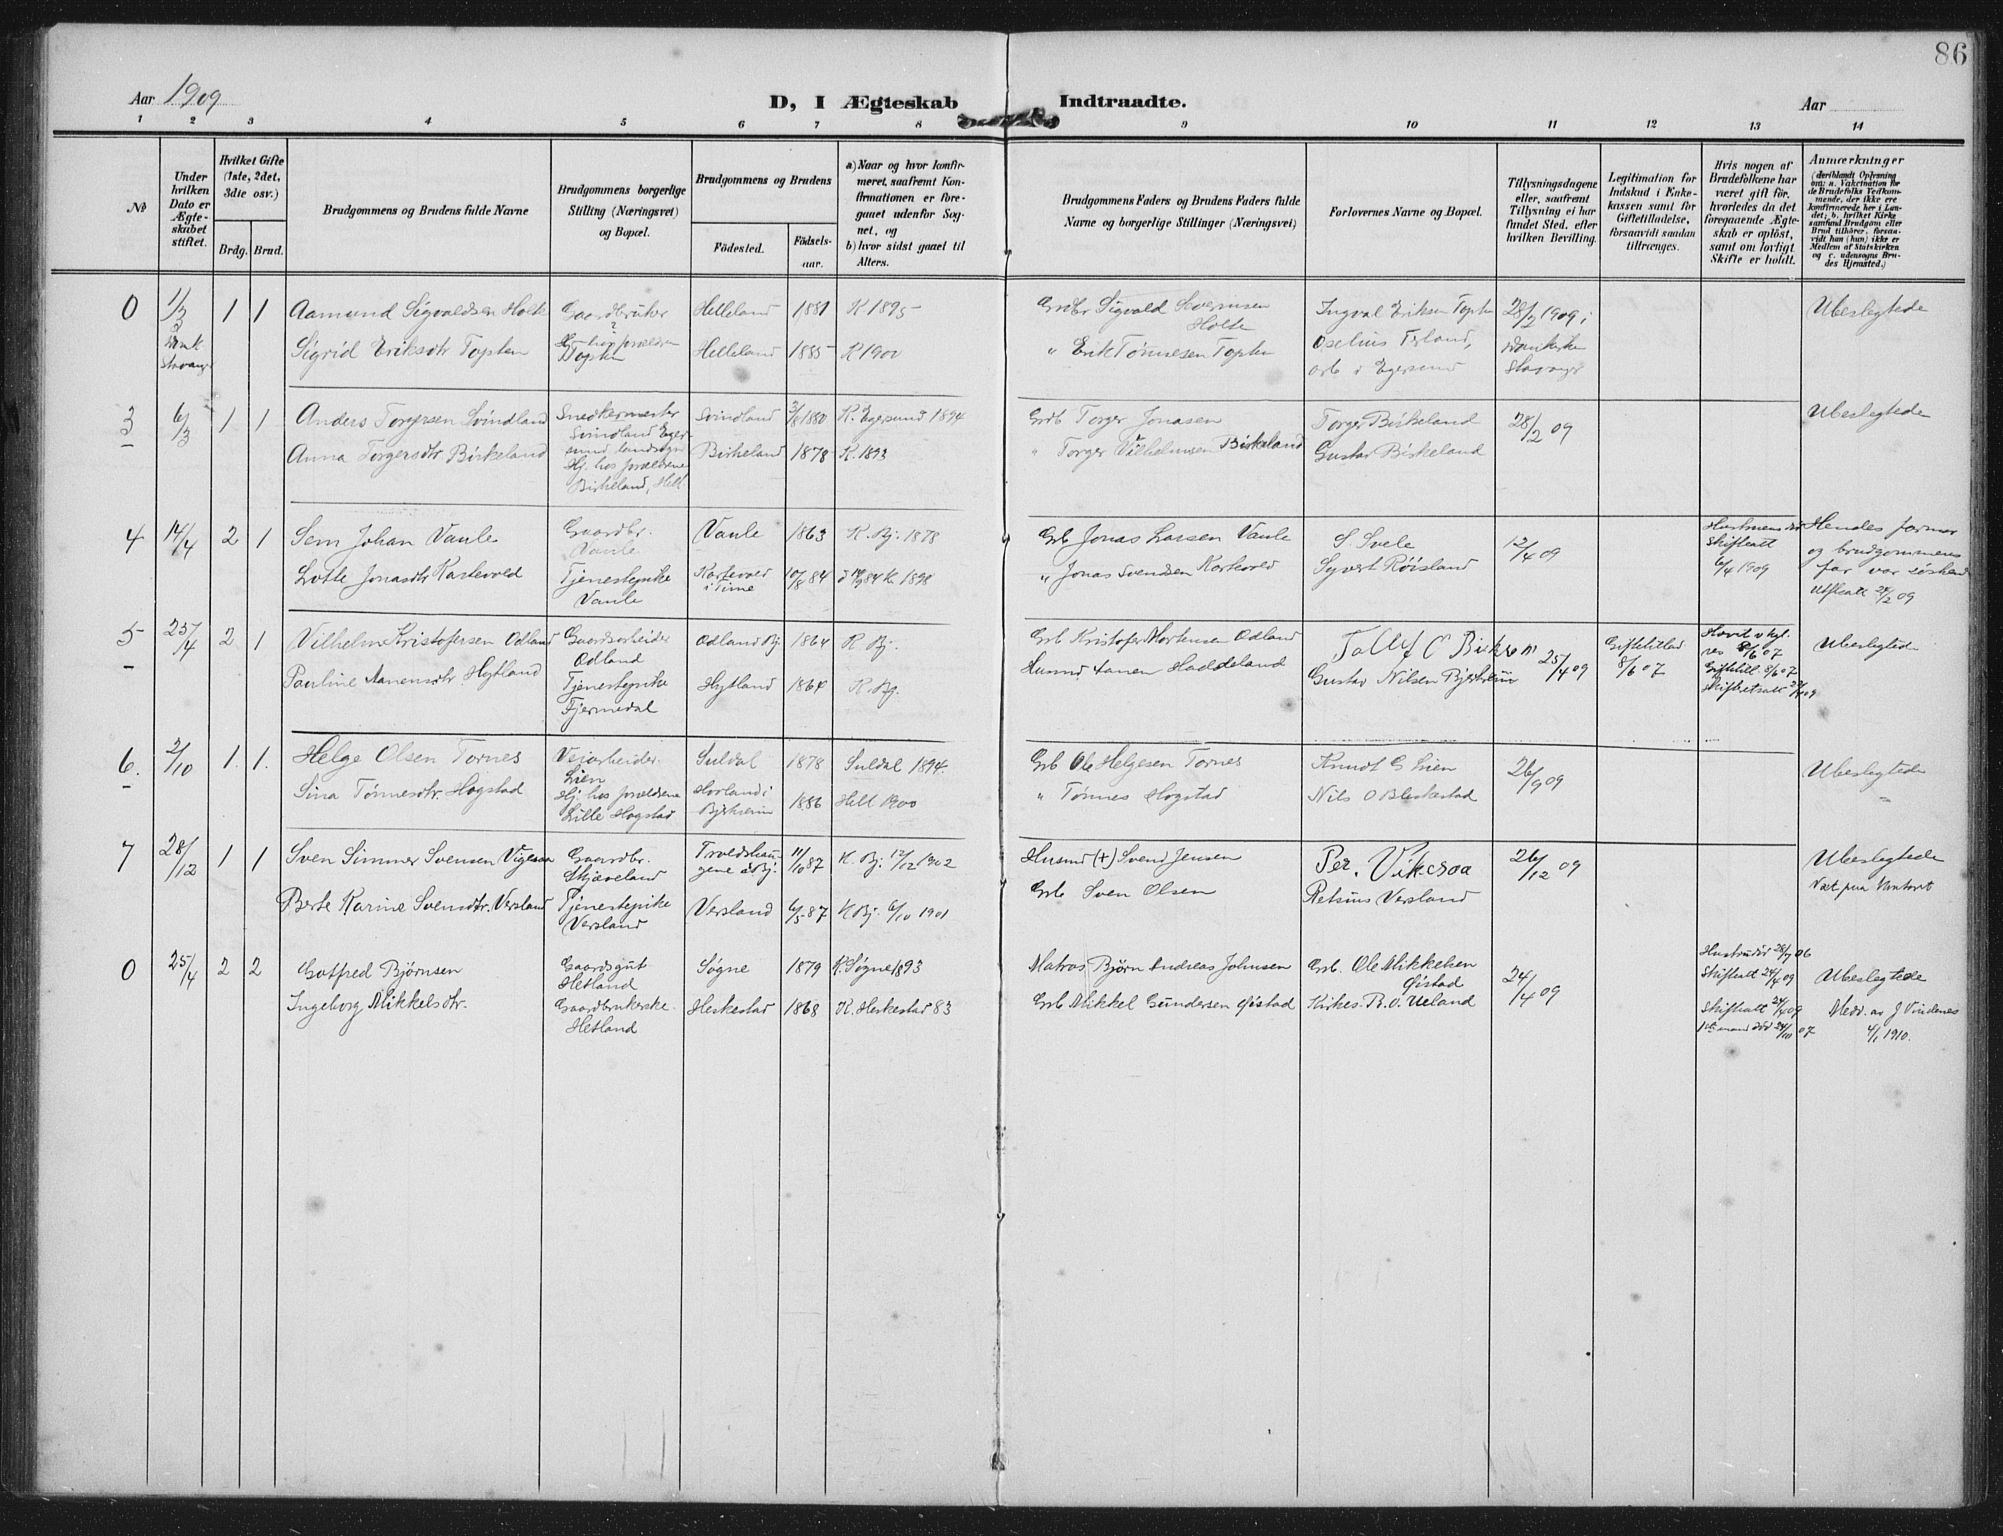 86
Aar 1909
D, I Ægteskab Indtraadte.
Aar
1 2 3 4 5 6 7 8 9 10 11 12 13 14
No
Under hvilken Dato er Ægteskabet stiftet.
Hvilket Gifte (1ste, 2det, 3die osv.)
Brdg. Brud.
Brudgommens og Brudens fulde Navne
Brudgommens borgerlige Stilling (Næringsvei) og Bopæl.
Brudgommens og Brudens
Födested. Födselsaar.
a) Naar og hvor konfirmeret, saafremt Konfirmationen er foregaaet udenfor Sognet, og
b) hvor sidst gaaet til Alters.
Brudgommens Faders og Brudens Faders fulde Navne og borgerlige Stillinger (Næringsvei)
Forlovernes Navne og Bopæl.
Tillysningsdagene eller, saafremt Tillysning ei har fundet Sted, efter hvilken Bevilling.
Legitimation for Indskud i Enkekassen samt for Giftetilladelse, forsaavidt saadan tiltrænges.
Hvis nogen af Brudefolkene har været gift för, hvorledes da det foregaaende Ægteskab er oplöst, samt om lovligt Skifte er holdt.
Anmærkninger
(deriblandt Oplysning om: a. Vakcination for de Brudefolks Vedkommende, der ikke ere konfirmerede her i Landet; b. hvilket Kirkesamfund Brudgom eller Brud tilhörer, forsaavidt han (hun) ikke er Medlem af Statskirken og c. udensogns Brudes Hjemsted.)
0 1/3 1 1 Aamund Sigvaldsen Holte Gaardbruker Helleland 1881 K 1895 Grdbr Sigvald
Holte Ingval Eriksen Topten 28/2 1909 i Ubeslegtede
Sigrid Eriksdtr Topten Topten Helleland 1885 K 1900 " Erik Tønnesen Topten
Egersund
3 6/3 1 1 Anders Torgersen Svindland Snedkermester Svindland Svindland 3/8 1880 K. Egersund 1894 Grdb Torger Jonasen Torger Birkeland 28/2 09 Ubeslegtede
Anna Torgersdtr Birkeland Hj. hos forældrene Birkeland, Hell. Birkeland 1878 K. 1893 " Torger Vilhelmsen Birkeland Gustav Birkeland
4 14/4 2 1 Sem Johan Vaule Gaardbr. Vaule Vaule 1863 K. Bj. 1878 Grb Jonas Larsen Vaule S Svele 12/4 09 Skifteatt 6/4 1909 Hendes farmor og brudgommens far var søsken
Lotte Jonasdtr Tjenestepike Vaule i Time 10/8 84 K. 1898 " Jonas Svendsen Syvert Røisland
5 25/4 2 1 Vilhelm Kristofersen Odland Gaardsarbeider Odland Odland Bj. 1864 K. Bj. Grb Kristofer Mortensen Odland 25/4 09 Giftetillad 8/6 07 Ubeslegtede
Pauline Aanensdtr Hytland Tjenestepike Fjermedal Hytland 1864 K. Bj. Husmd Aanen Haddeland Gustav Nilsen Bjerkreim
6. 2/10 1. 1. Helge Olsen Tornes Veiarbeider Lien Suldal 1878 Suldal 1894. Grb Ole Helgesen Tornes Knudt G Lien 26/9 09 Ubeslegtede
Sina Tønnesdtr. Hogstad Hj. hos forældrene Lille Hogstad Bjerkreim 1886 Hell 1900 " Tønnes Hogstad Nils O
7 28/12 1 1 Sven Simmer Svensen Vigesaa Gaardbr. Skjæveland 11/10 87 K. Bj. 12/02 1902 Husmd (+) Svend Jensen Per. Vikesaa 26/12 09 Ubeslegtede
Berte Karine Svensdtr. Versland Tjenestepike Versland Versland 6/5 87 K Bj. 6/10 1901 Grb Sven Olsen Versland
0 25/4 2 2 Gotfred Bjørnsen Gaardsgut Hetland Søgne 1879 K. Søgne 1893 Matros Bjørn Andreas Johnsen Grb. Ole Mikkelsen Øistad 24/4 09 Skifteatt 24/4 09 Ubeslegtede
Ingeborg Mikkelsdtr. Gaardbrukerske. Hetland Heskestad 1868 K. Heskestad 83 Grb Mikkel Gundersen Øistad Kirkes. B. O. Ueland Skifteatt 24/4 09 Medd. av J Vindenes 4/1 1910.